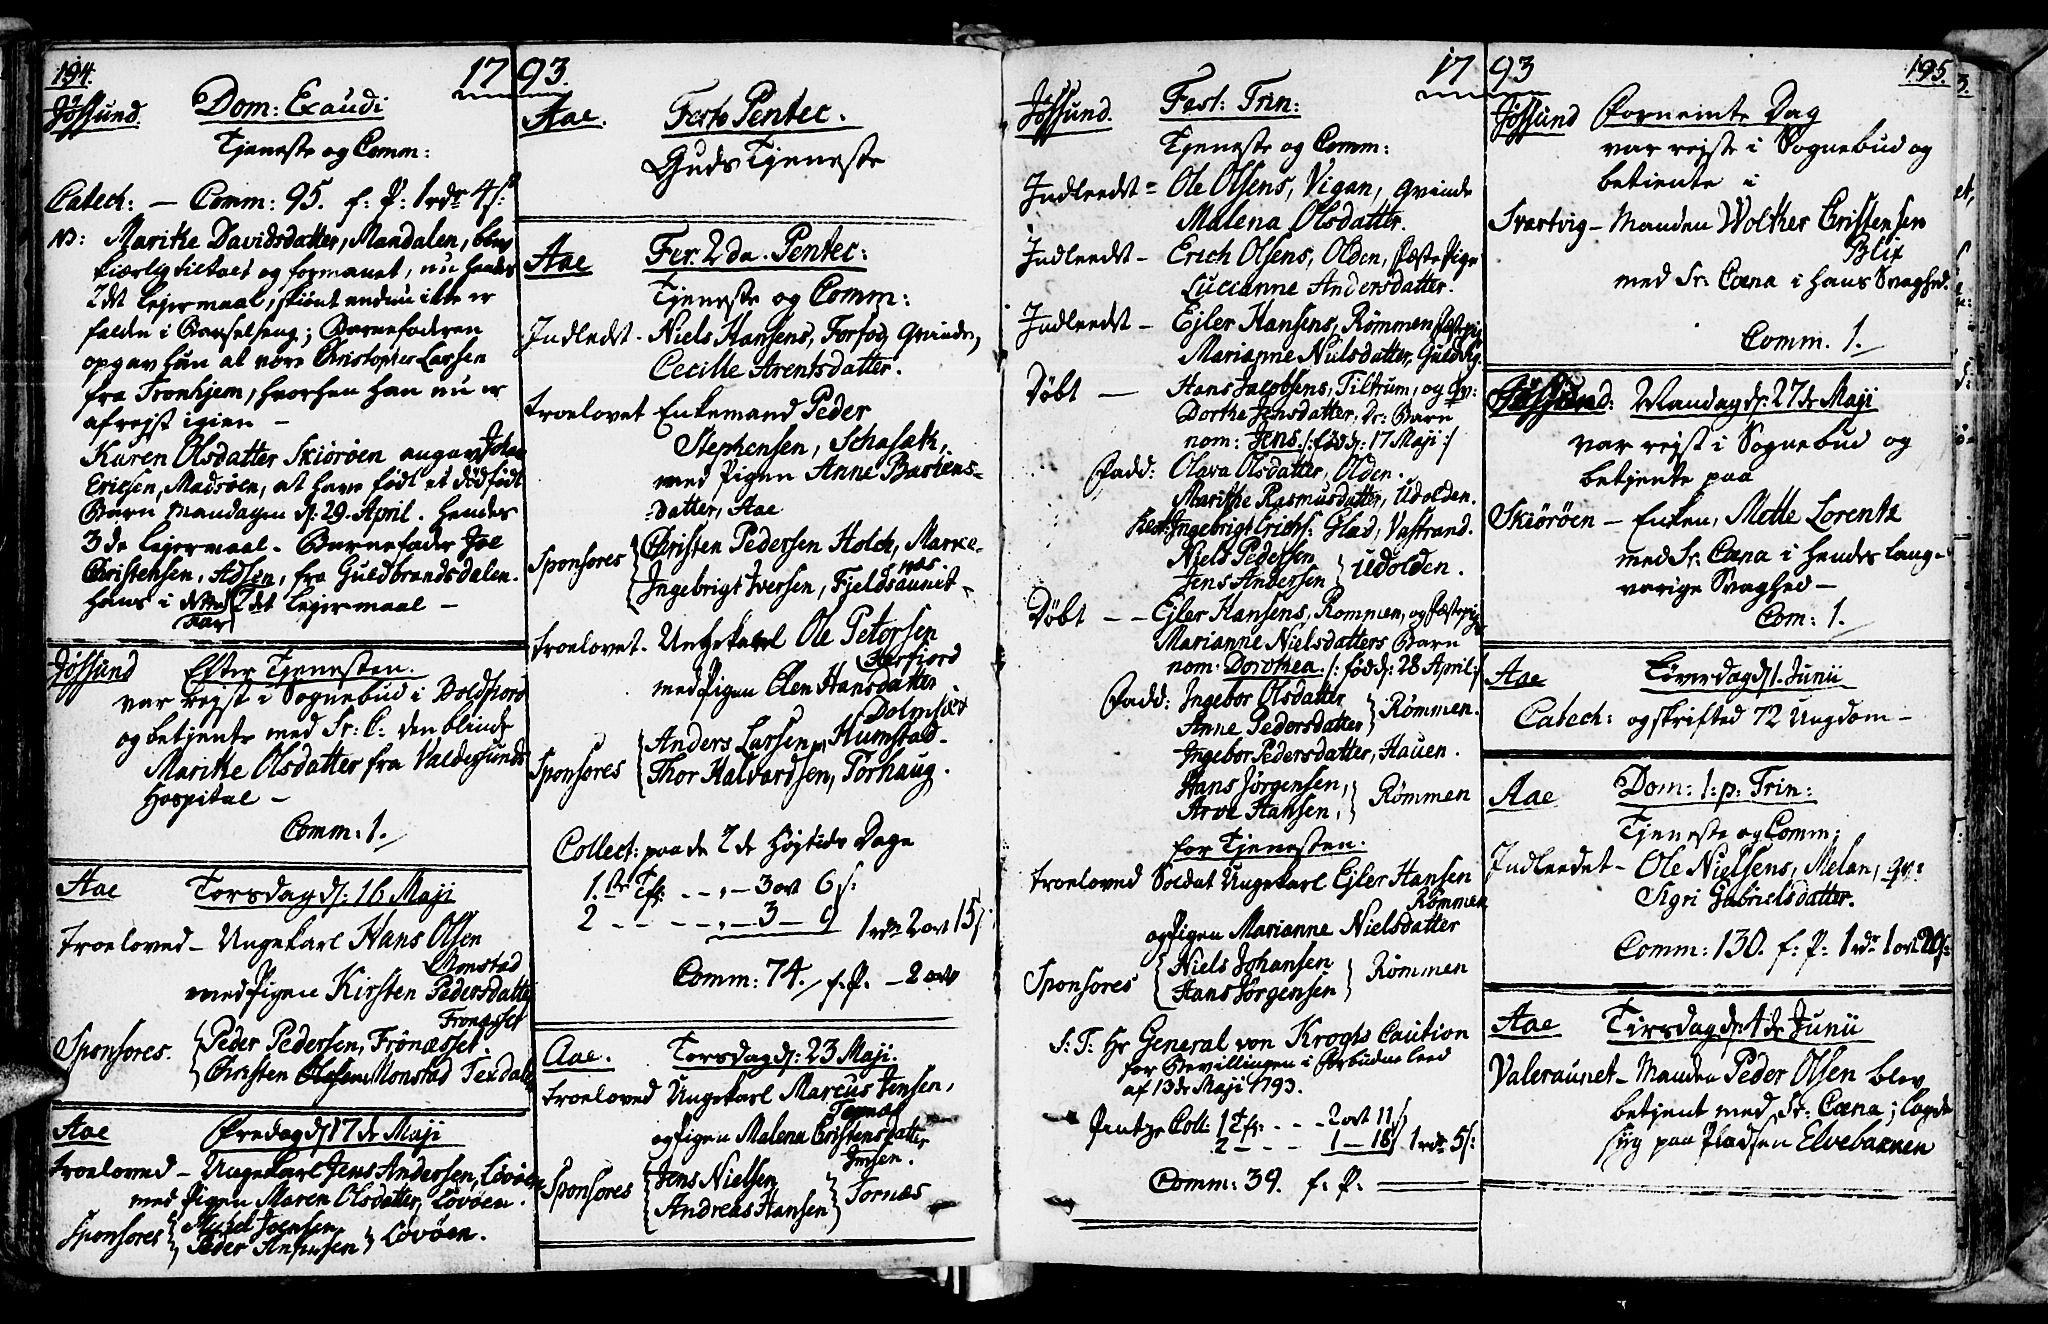 194.
1793.
Jössund. Dom: Exaudi
Tjeneste og Comm:
Catech: — Comm: 95. f: P: 1 rdr 4 s:
NB: Marithe Davidsdatter, Mandalen, blev
kierlig tiltalet og formanet, nu hendes
2det Lejermaal, skiönt endnu ikke er
falden i Barselseng; Barnefaderen
opgav hun at være Christopher Larsen
fra Tronhjem, hvorhen han nu er
afrejst igien —
Karen Olsdatter Skiöröen angav Johan
Ericsen, Madsöen, at have födt et dödfödt
Barn Mandagen d: 29. April. hendes
3de Lejermaal. Barnefader Joe
Christensen, Adsen, fra Guldbrandsdalen.
hans i 2det Lejermaal —
Jössund Efter Tjenesten.
var rejst i Sognebud i Boldfiord
og betjente med Sr: C: den blinde
Marithe Olsdatter fra Valdersunds
Hospital —
Comm: 1.
Aae Torsdag d: 16 Maji
Troeloved — Ungekarl Hans Olsen
Monstad
med Pigen Kirsten Pedersdatter
Frönesset
Sponsores. Peder Pedersen, Frönæsset.
Christen Monstad Texdal
Aae Fredag d 17de Maji
Troeloved — Ungekarl Jens Andersen, Lövöen
med Pigen Maren Olsdatter, Lövöen.
Sponsores Joensen
Peder } Lövöen.
Aae. Festo Pentec.
Guds Tjeneste
Aae Fer. 2da. Pentec:
Tjeneste og Comm:
Indledt. Niels Hansens, Forfog, Qvinde,
Cecille Arentsdatter.
Troelovet Enkemand Peder
Stephensen,
med Pigen Anne Bastens-
datter, Aae
Sponsores Christen Pedersen Holch, Marke-
næs.
Ingebrigt Iversen, Fjeldsaunet
Troelovet. Ungekarl Ole Petersen
Herfiord
med Pigen Elen Hansdatter
Sponsores Anders Larsen, Humstad.
Thor Halvardsen, Torhaug.
Collect: paa de 2de Højtids Dage
1. ste - - - 3 ort 6 s:
2 - - - - - 3 — 9 1 rdr 2 ort 15 s:
Comm: 74. f. P. — 2 ort
Aae. Torsdag d: 23 Maji.
Troeloved Ungekarl Marcus Jensen,
Tornæs
og Pigen Malena Christensdatter
Sponsores Jens Nielsen
Andreas Hansen } Tornæs
1793 195.
Jössund. Fest: Trin:
Tjeneste og Comm:
Indleedt = Ole Olsens, Vigan, Qvinde
Malena Olsdatter.
Indleedt — Erich Olsens, Olden, Fæste Pige
Luccanne Andersdatter.
Indleedt — Ejler Hansens, Römmen Fæstepig
Marianne Nielsdatter,
Döbt — Hans Jacobsens, Tiltrum, og Qv:
Dorthe Jensdatter, Barn
nom: Jens /: föd d: 17 Maji :/
Fadd: Olava Olsdatter, Olden.
Marithe Rasmusdatter, Udolden.
Ingebrigt Erichs: Glad, Vastrand.
Niels Pedersen
Jens Andersen } Udolden.
Döbt — — Ejler Hansens, Rommen, og Fæstepige
Marianne Nielsdatters Barn
nom: Dorothea /: föd d: 28 April :/
Fadd: Ingebor Olsdatter
Anne Pedersdatter } Römmen.
Ingebor Pedersdatter, Hauen.
Hans Jörgensen,
Arve Hansen, } Römmen
for Tjenesten.
Troeloved Soldat Ungekarl Ejler Hansen
Römmen
og Pigen Marianne Nielsdatter
Sponsores Niels Johansen
Hans Jörgensen } Römmen
S: T: Hr General von Kroghs Caution
for Bevillingen i Forbudne Leed
af 13de Maji 1793.
Pentze Coll: 1 - - - 2 ort 11 s
2 - - - 1 — 18 s 1 rdr 5 s:
Comm: 39. f. P.
Jössund Fornemte Dag
var rejste i Sognebud og
betiente i
Svartvig — Manden Wolther Christensen
Blix
med Sr: Cæna i hans Svaghed.
Comm. 1.
Jössund: Mandag d: 27de Maji
var rejst i Sognebud og
betjente paa
Skiöröen — Enken, Mette Lorentz
med Sr: Cæna i hendes lang-
varige Svaghed —
Com: 1.
Aae Löverdag d 1. Junii
Catech: og skrifted 72 Ungdom —
Aae Dom: 1: p: Trin:
Tjeneste og Comm:
Indleedet — Ole Nielsens, Melan, qv:
Sigri Gabrielsdatter.
Comm: 130. f: P: 1 rdr 1 ort 20 s:
Aae Tirsdag d: 4de Junii
Valeraunet — Manden Peder Olsen blev
betjent med Sr: Cæna; laae
syg paa Pladsen Elvebakken